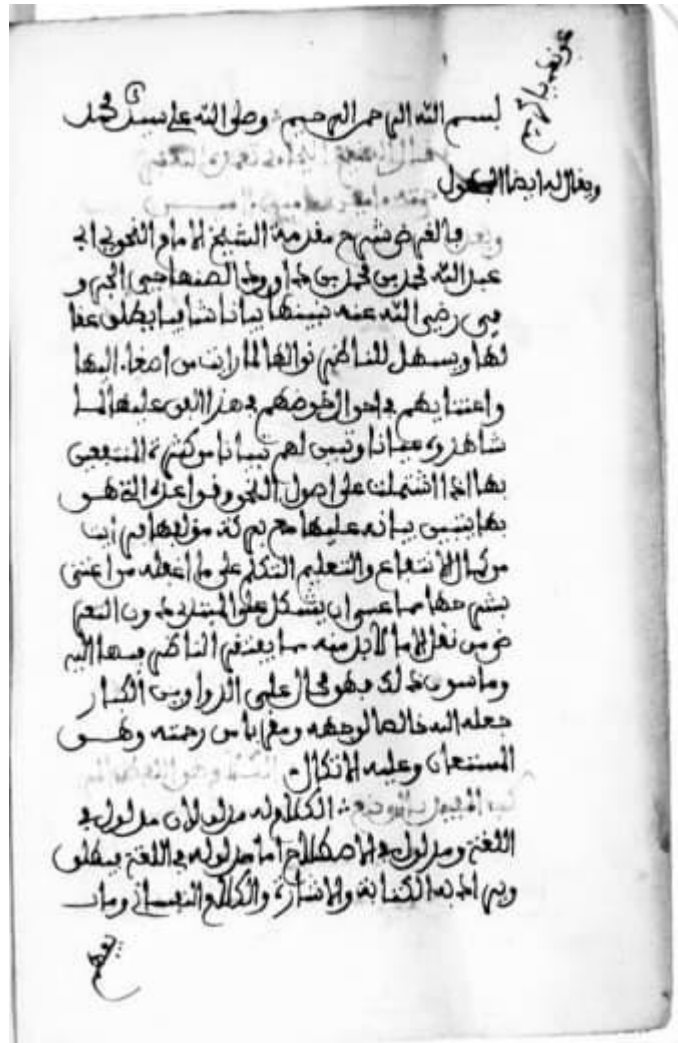 عونك يا كريم
بسم الله الرحمن الرحيم وصلى الله على سيدنا محمد
ويقال له ايضا
وبعد فالغرض شرح مقدمة الشيخ الامام النحوي ابي
عبد الله محمد بن محمد بن داوود الصنهاجي الجرو
مي رضي الله عنه يبينها بيانا شافيا يطلق عقا
لها ويسهل للناظم نوالها لما رايت من اصغاء اليها
واعتنايهم في احوال خوضهم في هذا الفن عليها لما
شاهدوه عيانا وتبين لهم تبيانا من كثرة المنتفعين
بها اذا اشتملت على اصول النحو وقواعده التي هو
بها ينبني بيانه عليها مع بركة مؤلفها فرايت
من كمال الانتفاع والتعليم التكلم على ما اغفله من اعتنى
بشرحها مما عسى ان يشكل على المبتدي دون التعر
ض من نقل الا ما لا بد منه مما يفتقر الناظر فيها اليه
وما سوى ذلك فهو محال على الدواوين الكبار
جعله الله خالصا لوجهه ومقربا من رحمته وهو
المستعان وعليه الاتكال
المفيد بالوضع الكلام له مدلولان مدلول في
اللغة ومدلول في الاصطلاح اما مدلوله في اللغة يطلق
ويراد به الكتابة والاشارة والكلام النفساني وما
يفهم